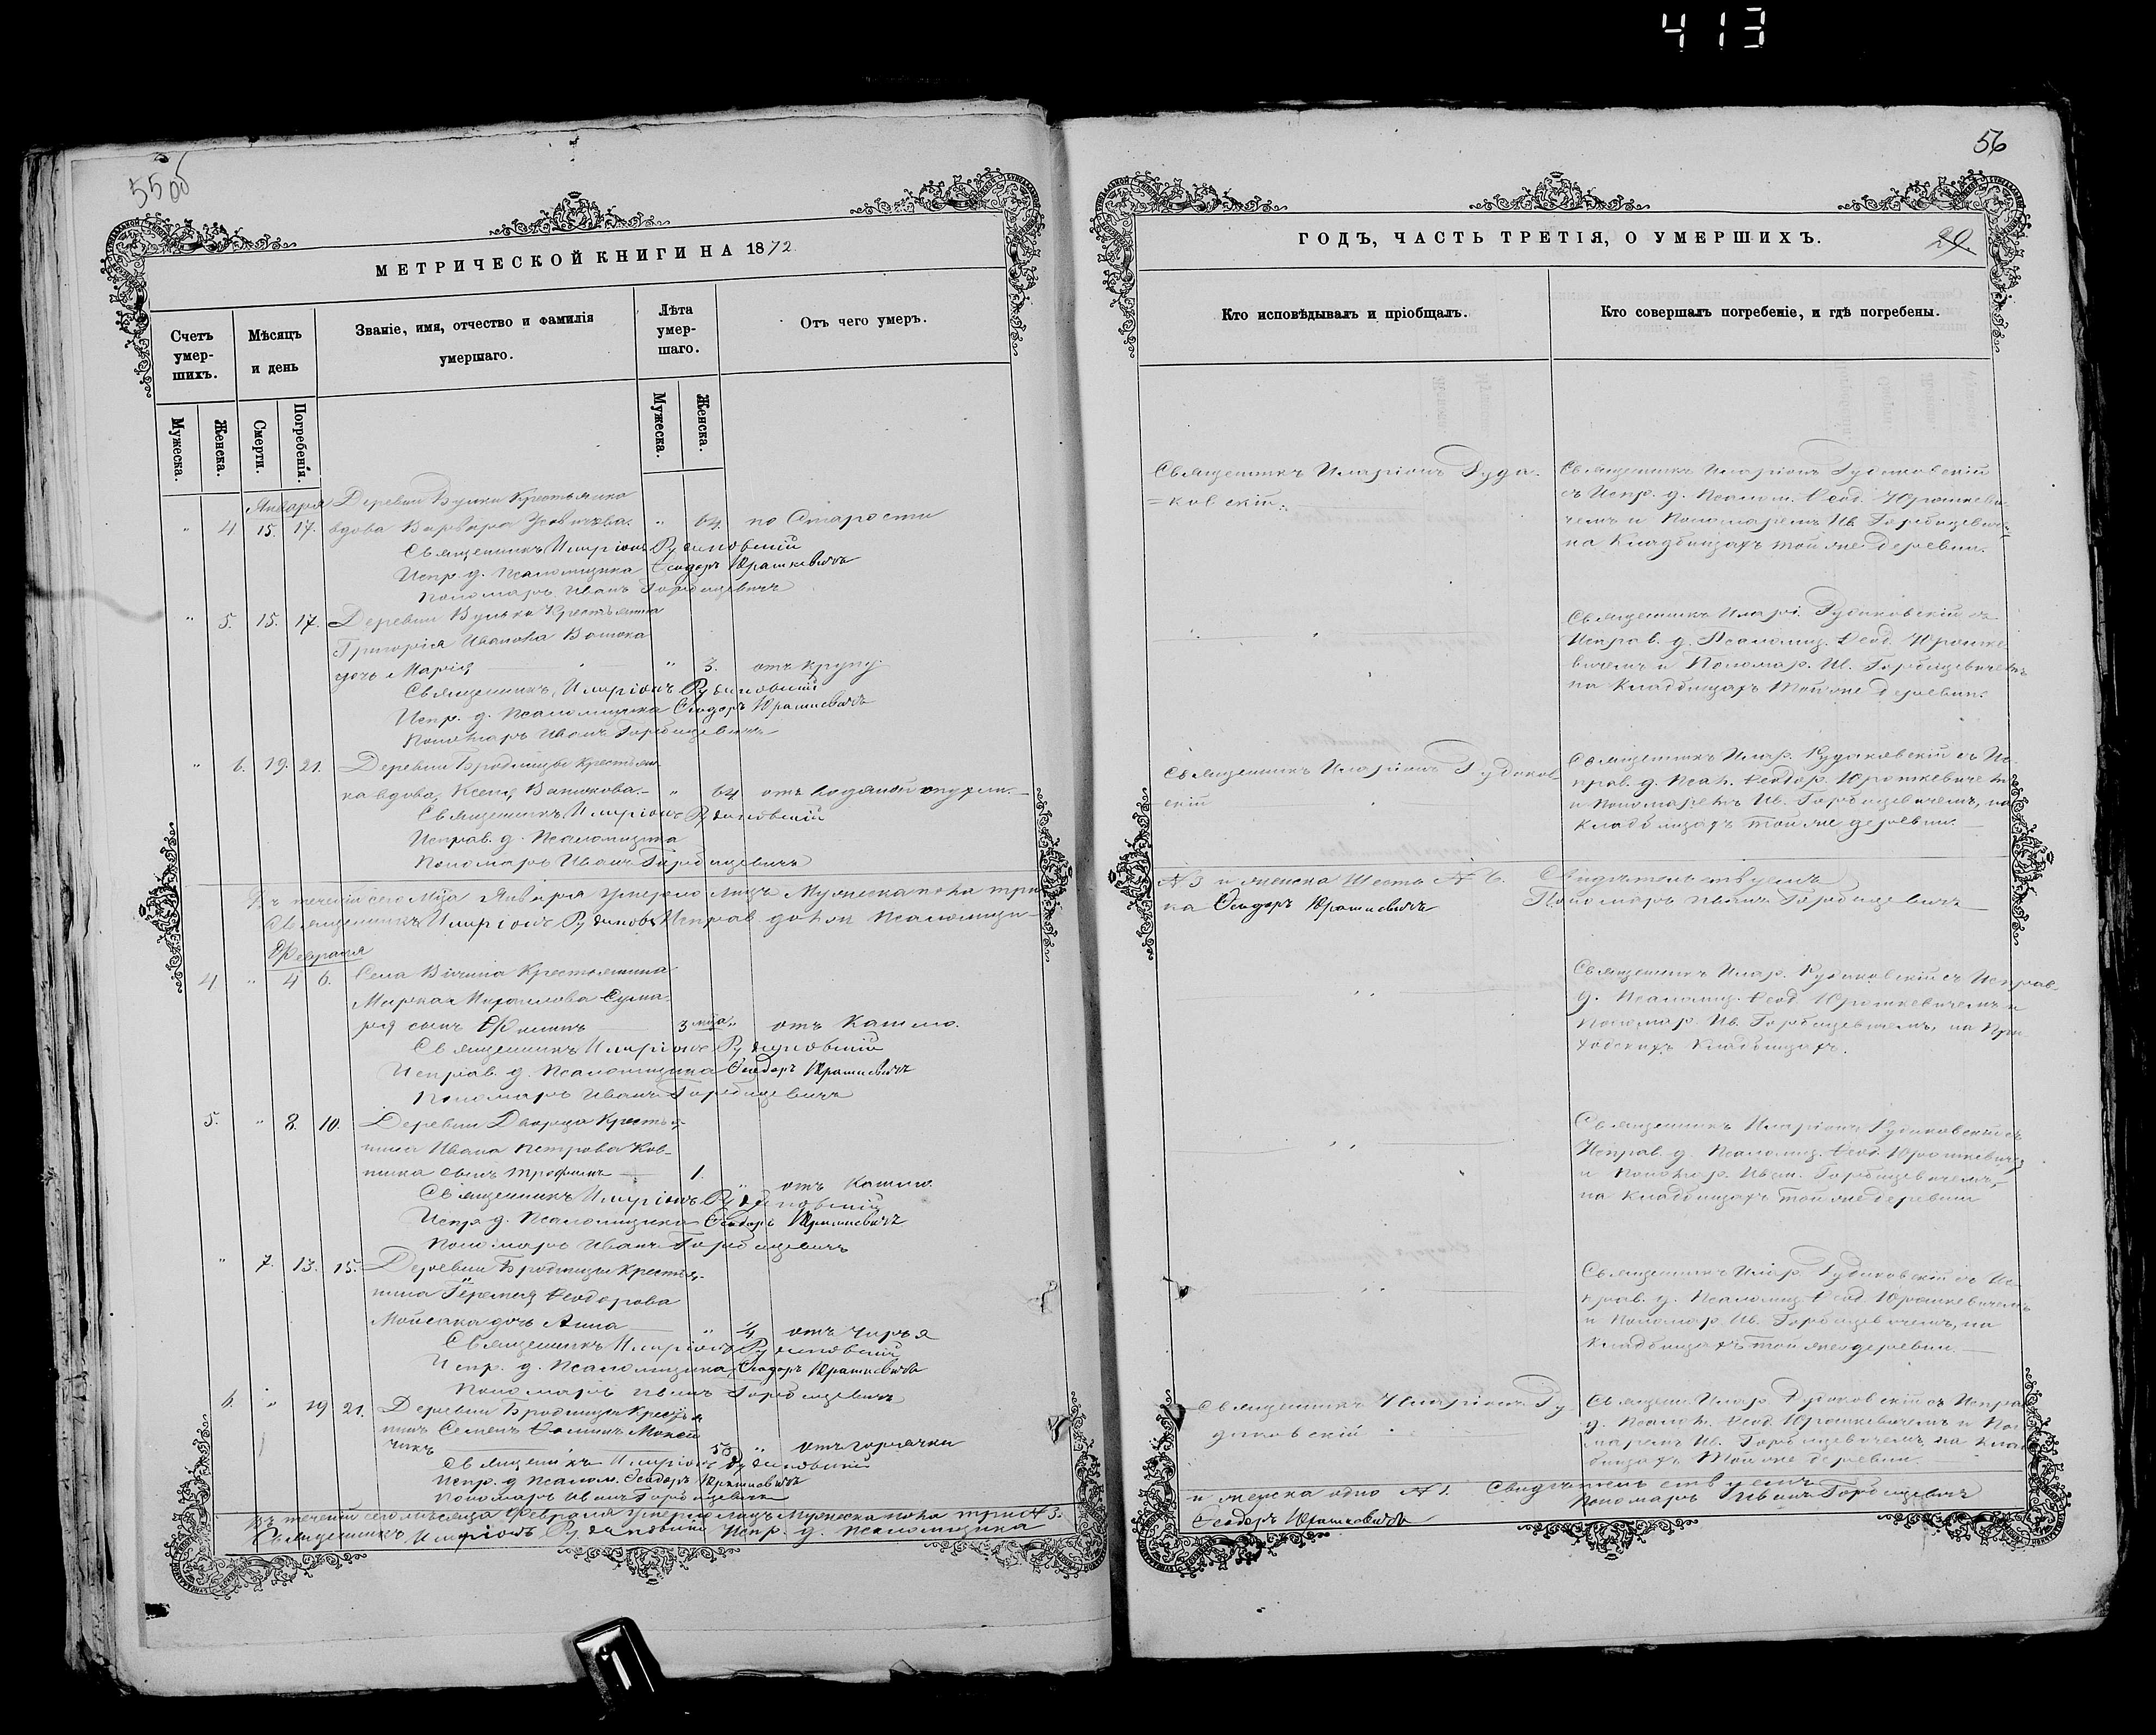 413
55 об
МЕТРИЧЕСКОЙ КНИГИ НА 1872
Счетъ умер-шихъ.
Мѣсяцъ и день
Званіе, имя, отчество и фамилія умершаго.
Лѣта умер-шаго.
Отъ чего умеръ.
Мужеска.
Женска.
Смерти.
Погребенія.
Мужеска.
Женска.
Января Деревни Крестьянка
" 4 15. 17. вдова Варвара " 64. по Старости
Священникъ Иларіонъ Рудаковскій
Испр. д. Псаломщика Ѳеодоръ Юрашкевичъ
Пономарь Иванъ Горбацевичъ
" 5. 15. 17. Деревни Вульки Крестьянина
Григорія Иванова
дочь Марія " 3. отъ крупу.
Священникъ Иларіонъ Рудаковскій
Испр. д. Псаломщика Ѳеодоръ Юрашкевичъ
Пономарь Иванъ Горбацевичъ
" 6. 19. 21. Деревни Бродницы Крестьян
ка вдова, Ксенія Ванюкова. " 64 отъ водяной опухли.
Священникъ Иларіонъ Рудаковскій
Исправ. д. Псаломщика
Пономарь Иванъ Горбацевичъ
Въ теченіи сего Мца Января умерло лицъ Мужеска пола три
Священникъ Иларіонъ Рудаковс Исправ. долж Псаломщи-
Февраля
4 " 4 6. Села Крестьянина
Марка Михайлова
ря сынъ Филипъ 3 мца " отъ Кашлю.
Священникъ Иларіонъ Рудаковскій
Исправ. д. Псаломщика Ѳеодоръ Юрашкевичъ
Пономарь Иванъ Горбацевичъ
5. " 8. 10. Деревни Дворца Крестья-
нина Ивана Петрова Ков-
сынъ Трофимъ 1. " отъ Кашлю
Священникъ Иларіонъ Рудаковскій
Испр. д. Псаломщика Ѳеодоръ Юрашкевичъ
Пономарь Иванъ Горбацевичъ
" 7. 13. 15. Деревни Бродницы Крестья-
нина Ѳеодорова
дочь Анна " отъ чирья
Священникъ Иларіонъ Рудаковскій
Испр. д. Псаломщика, Ѳеодоръ Юрашкевичъ
Пономарь Иванъ Горбацевичъ
6. " 19 21. Деревни Бродницы Крестья
нинъ Семенъ
чикъ " отъ горячки
Священникъ Иларіонъ Рудаковскій
Испр. д Псалом. Ѳеодоръ Юрашкевичъ
Пономарь Иванъ Горбацевичъ
Въ теченіи сего мѣсяца Февраля умерло лицъ Мужеска пола три № 3.
Священникъ Иларіонъ Рудаковскій Испр. д. Псаломщика
56
ГОДЪ, ЧАСТЬ ТРЕТІЯ, О УМЕРШИХЪ.
29
Кто исповѣдывалъ и пріобщалъ.
Кто совершалъ погребеніе, и гдѣ погребены.
Священникъ Иларіонъ Руда-
=ковскій.
Священникъ Иларіонъ Рудаковскій
съ Испр. д. Псалом. Ѳеод. Юрашкеви-
чемъ и Пономаремъ Ив. Горбацевичемъ
на Кладбищахъ той же деревни.
Священникъ Иларі. Рудаковскій съ
Исправ. д. Псаломщ. Ѳеод. Юрашке-
вичемъ и Пономар. Ив. Горбацевичемъ
на Кладбищахъ той же деревни.
Священникъ Иларіонъ Рудаков
скій
Священникъ Илар. Рудаковскій съ Ис-
прав. д. Псал. Ѳеодор. Юрашкевичемъ
и Пономаремъ Ив. Горбацевичемъ, на
Кладбищахъ той же деревни.
№ 3 и женска Шесть № 6. Свидѣтельствуемъ
ка Ѳеодоръ Юрашкевичъ Пономарь Иванъ Горбацевичъ
Священникъ Илар. Рудаковскій съ Исправ-
д. Псаломщ. Ѳеод. Юрашкевичемъ и
Пономар. Ив. Горбацевичемъ, на При-
ходскихъ Кладбищахъ.
Священникъ Иларіонъ Рудаковскій съ
Исправ. д. Псаломщ. Ѳеод. Юрашкевичем
и Пономар. Иван. Горбацевичемъ,
на Кладбищахъ той же деревни
Священникъ Илар. Рудаковскій съ Ис-
прав. д. Псаломщ. Ѳеод. Юрашкевичемъ
и Пономар. Ив. Горбацевичемъ, на
Кладбищахъ той же деревни.
Священникъ Иларіонъ Ру
даковскій
Священ. Илар. Рудаковскій съ Исправ
д. Псалом. Ѳеод. Юрашкевичемъ и Поно
маремъ Ив. Горбацевичемъ, на Клад
бищахъ той же деревни.
и женска одно № 1. Свидѣтельствуемъ
Ѳеодоръ Юрашкевичъ Пономарь Иванъ Горбацевичъ